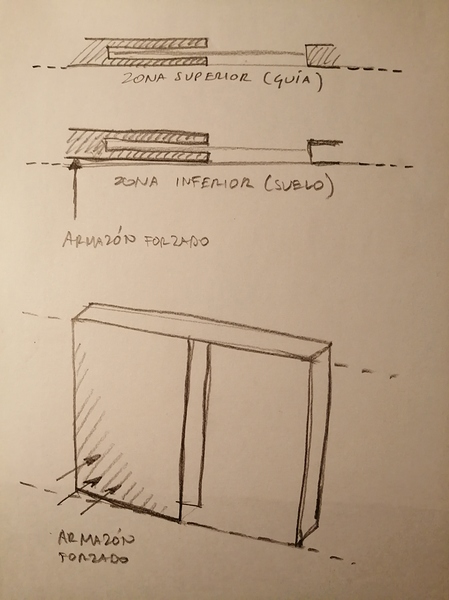 ZONA SUPERIOR (GUÍA)
ZONA INFERIOR (SUELO)
ARMAZÓN FORZADO
ARMAZÓN
FORZADO